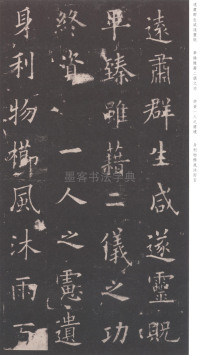 遠肅群生咸遂靈貺
畢臻雖藉二儀之功
終資一人之慮遺
身利物櫛風沐雨
墨客书法字典